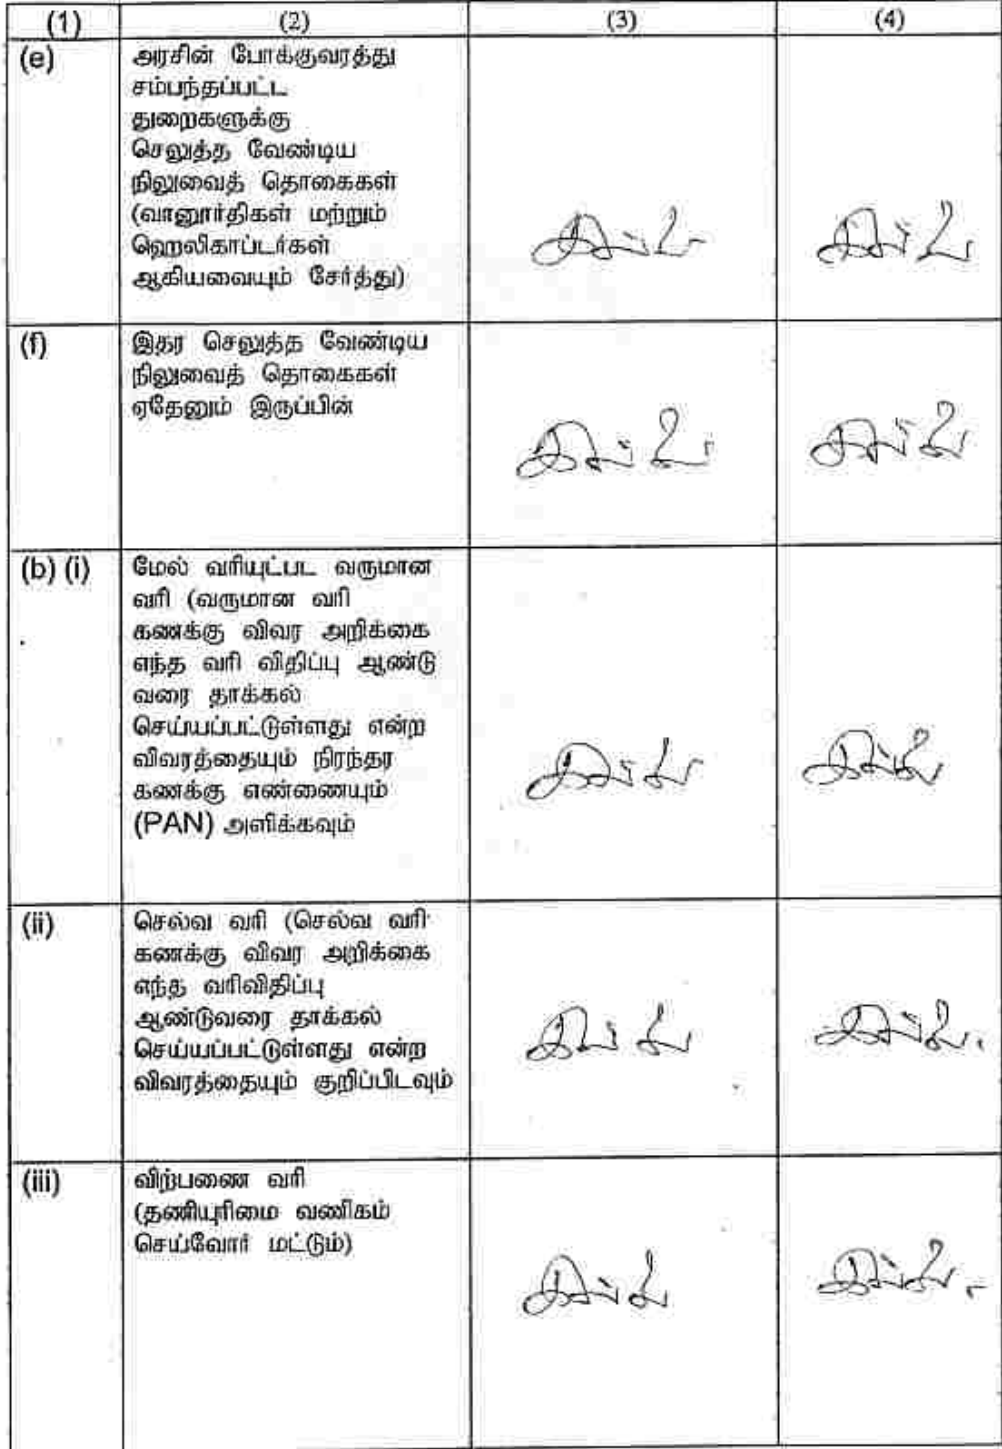 (1) (2) (3) (4)
(e) அரசின் போக்குவரத்து
சம்பந்தப்பட்ட
துறைகளுக்கு
செலுத்த வேண்டிய
நிலுவைத் தொகைகள்
(வானூர்திகள் மற்றும்
ஹெலிகாப்டர்கள்
ஆகியவையும் சேர்த்து)
இல்லை இல்லை
(f) இதர செலுத்த வேண்டிய
நிலுவைத் தொகைகள்
ஏதேனும் இருப்பின்
இல்லை இல்லை
(b) (i) மேல் வரியுட்பட வருமான
வரி (வருமான வரி
கணக்கு விவர அறிக்கை
எந்த வரி விதிப்பு ஆண்டு
வரை தாக்கல்
செய்யப்பட்டுள்ளது என்ற
விவரத்தையும் நிரந்தர
கணக்கு எண்ணையும்
(PAN) அளிக்கவும்
இல்லை இல்லை
(ii) செல்வ வரி (செல்வ வரி
கணக்கு விவர அறிக்கை
எந்த வரிவிதிப்பு
ஆண்டுவரை தாக்கல்
செய்யப்பட்டுள்ளது என்ற
விவரத்தையும் குறிப்பிடவும்
இல்லை இல்லை.
(iii) விற்பணை வரி
(தணியுரிமை வணிகம்
செய்வோர் மட்டும்)
இல்லை இல்லை.